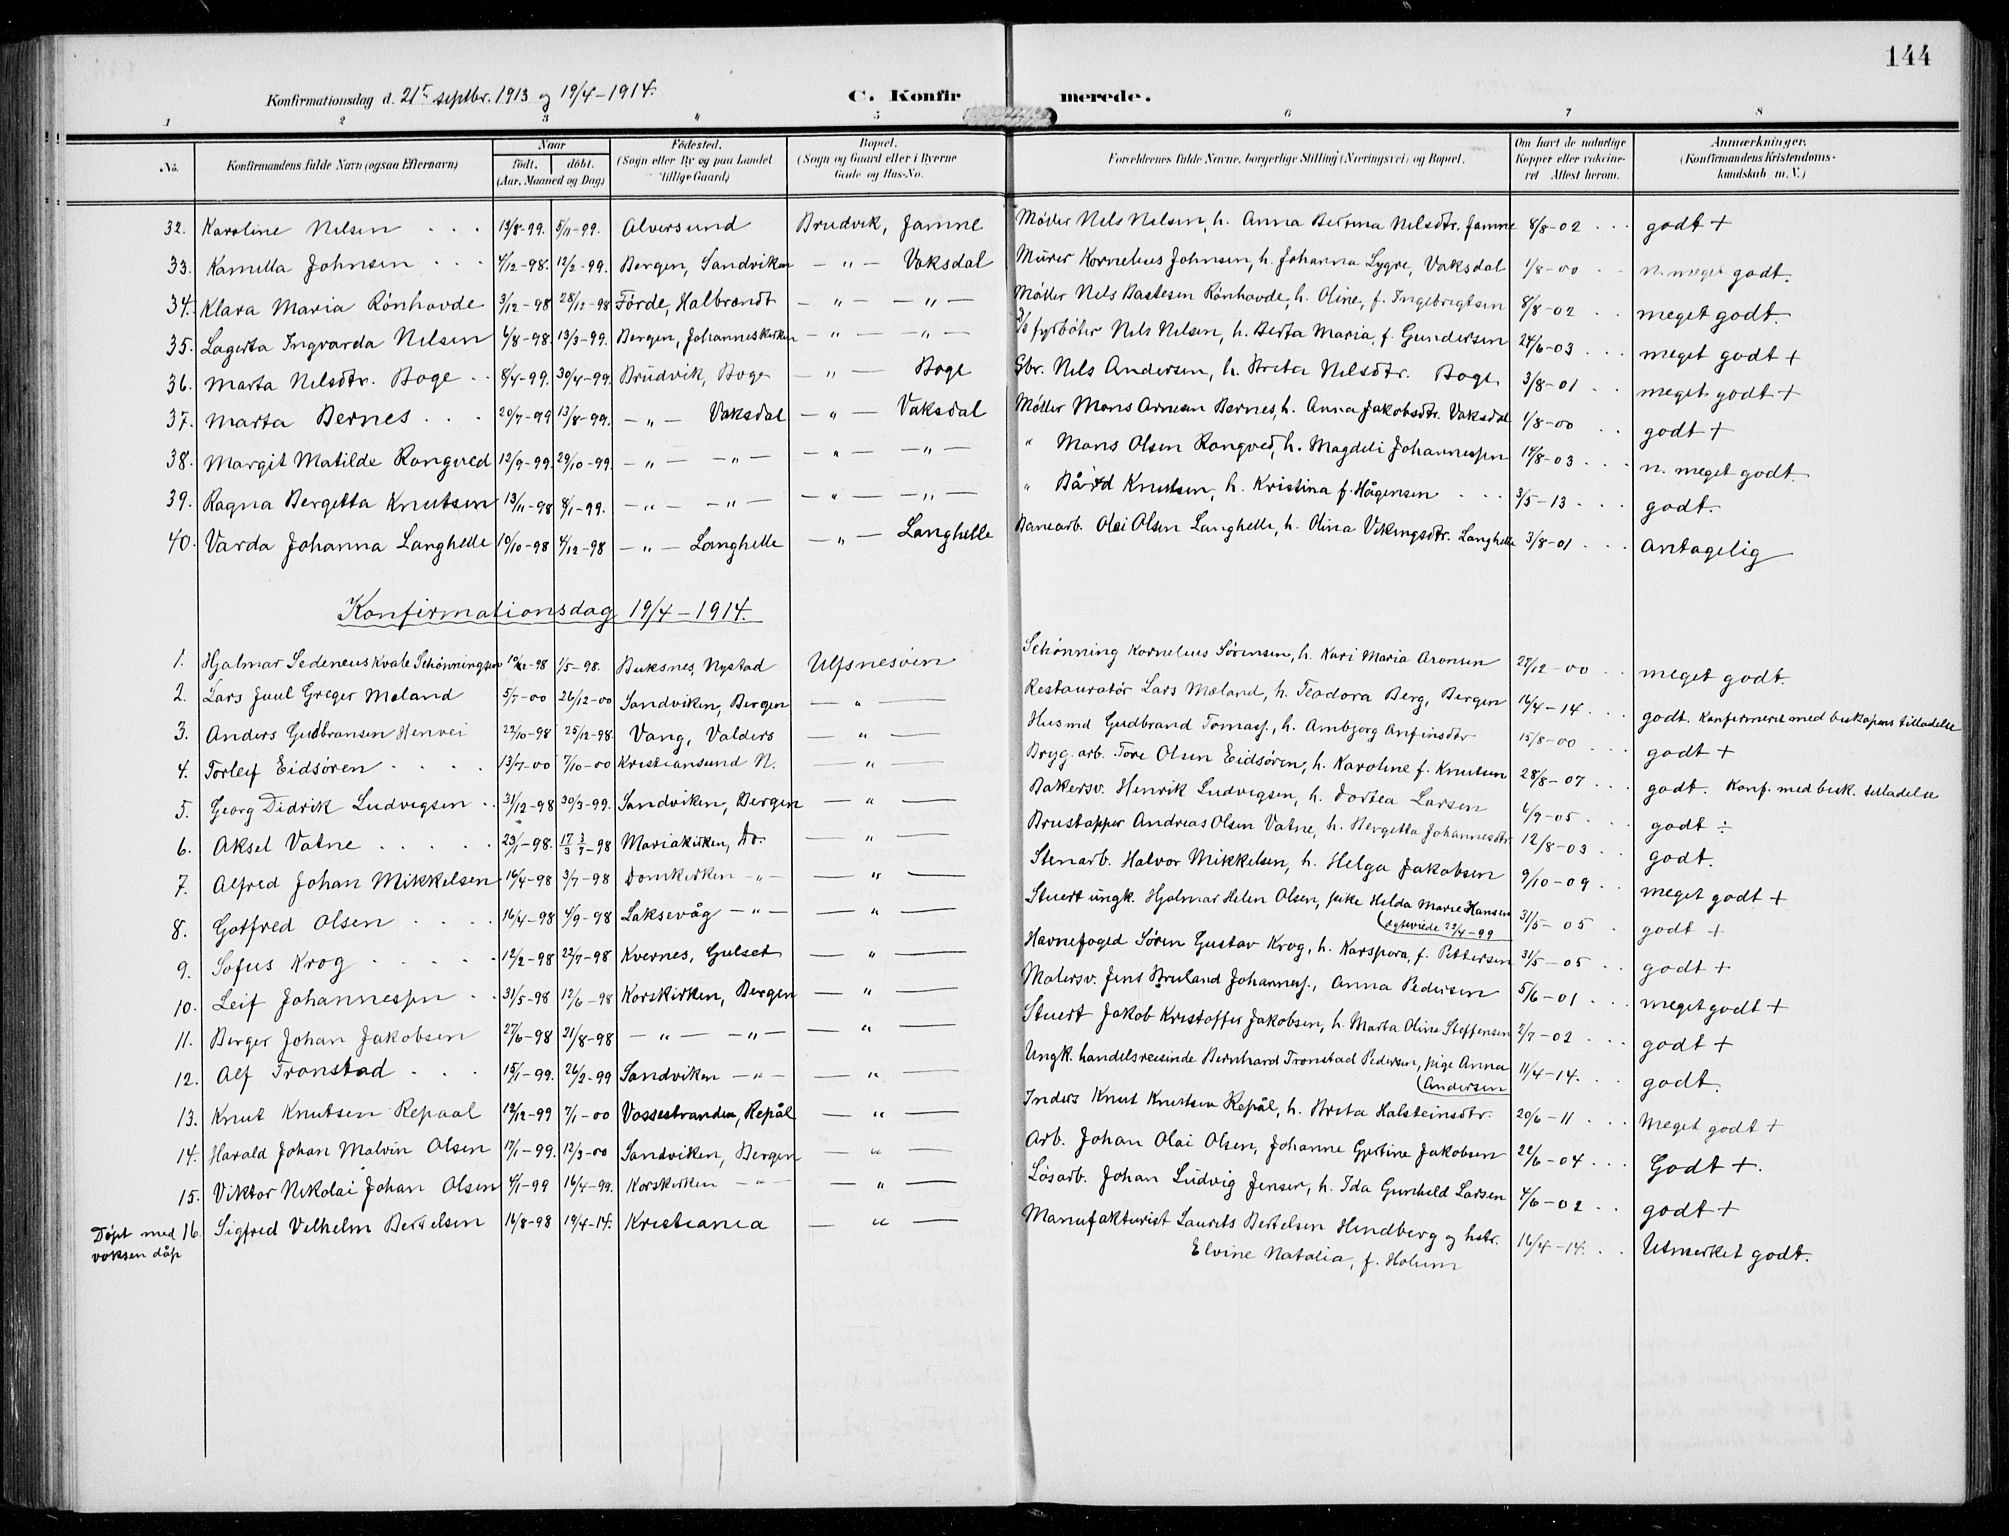 144
Konfirmationsdag d. 21de septbr. 1913 og 19/4-1914.
C. Konfirmerede.
1 2 3 " 5 6 7 8
No. Konfirmandens fulde Navn (ogsaa Efternavn) Naar født. døbt. (Aar, Maaned og Dag) Fødested. (Sogn eller By og paa Landet tillige Gaard) Bopæl. (Sogn og Gaard eller i Byerne Gade og Hus-No. Forældrenes fulde Navne, borgerlige Stilling (Næringsvei) og Bopæl. Om havt de naturlige Kopper eller vaccineret Attest herom. Anmærkninger. (Konfirmandens Kristendomskundskab m. V.)
32. Karoline Nilsen 13/8-99. 5/11-99. Alversund Brudvik, Jamne Møller Nels Nelsen, h. Anna Bertina Nelsdtr. Jamne 8/8-02 godt +
33. Kamilla Johnsen 4/12-98. 12/2-99. Bergen, Sandviken — " — Vaksdal Murer Kornelius Johnsen, h. Johanna Lygre, Vaksdal 1/8-00 n. meget godt.
34. Klara Maria Rønhovde 3/12-98 28/12-98 Førde, Halbrendt — " — — " — Møller Nels Bastesen Rønhovde, h. Oline, f. Ingebrigtsen 8/8-02 meget godt.
35. Lagerta Ingvarda Nelsen 6/8-98. 13/3-99. Bergen, Johanneskirken — " — — " — fyrbøter Nels Nelsen, h. Berta Maria, f. Gundersen 24/6-03 meget godt +
36. Marta Nelsdtr. Boge 8/4-99. 30/4-99. Brudvik, Boge — " — Boge Gbr. Nels Andersen, h. Brita Nelsdtr. Boge 3/8-01 meget godt +
37. Marta Bernes 20/7-99 13/8-99. — " — Vaksdal — " — Vaksdal Møller Mons Arnesen Bernes, h. Anna Jakobsdtr. Vaksdal 1/8-00 godt +
38. Margit Matilde Rongved 12/9-99. 29/10-99. — " — — " — — " — — " — " Mons Olsen Rongved, h. Magdeli Johannessen 14/8-03 n. meget godt.
39. Ragna Bergetta Knutsen 13/11-98 8/1-99. — " — — " — — " — — " — " Bård Knutsen, h. Kristina f. Hågensen 3/5-13 godt.
40. Varda Johanna Langhelle 10/10-98 4/12-98 — " — Langhelle — " — Langhelle Banearb. Olai Olsen Langhelle, h. Olina Vikingsdtr. Langhelle 3/8-01 Antagelig
Konfirmationsdag 19/4-1914.
1. Hjalmar Sedeneus Kvale Schönningsen 1/5-98. Buksnes, Nystad Ulfsnesøen Schönning Kornelius Sørensen, h. Kari Maria Aronsen 27/12-00 meget godt.
2. Lars Juul Greger Mæland 5/7-00 26/12-00 Sandviken, Bergen — " — Restauratør Lars Mæland, h. Teodora Berg, Bergen 16/4-14 godt. Konfirmeret med biskopens tilladelse
3. Anders Gudbransen Henvei 22/10-98 25/12-98. Vang, Valders — " — Husmd Gudbrand Tomass., h. Ambjørg Anfinsdtr 15/8-00 godt +
4. Torleif Eidsøren 13/7-00 7/10-00 Kristiansund N. — " — Bryg. arb. Tore Olsen Eidsøren, h. Karoline f. Knutsen 28/8-07 godt. Konf. med bisk. tilladelse
5. Georg Didrik Ludvigsen 31/12-98 30/3-99. Sandviken, Bergen — " — Bakersv. Henrik Ludvigsen, h. Dortea Larsen 6/9-05 godt ÷
6. Aksel Vatne 23/1-98. Mariakirken, Do. — " — Brustapper Andreas Olsen Vatne, h. Bergetta Johannesdtr 12/8-03 godt.
7. Alfred Johan Mikkelsen 16/4-98 3/7-98 Domkirken — " — — " — Stenarb. Halvor Mikkelsen, h. Helga Jakobsen 9/10-09 meget godt +
8. Gotfred Olsen 16/4-98 4/9-98 Laksevåg — " — — " — Stuert ungk. Hjalmar Helen Olsen, pike Helda Marie Hansen (egteviede 22/4-99 31/5-05 godt +
9. Sofus Krog 12/2-98 22/7-98 Kvernes, Gulset — " — Havnefoged Søren Gustav Krog, h. Karspara, f. Pettersen 31/5-05 godt +
10. Leif Johannessen 31/5-98 12/6-98 Korskirken, Bergen — " — Malersv. Jens Bruland Johanness., Anna Pedersen 5/6-01 meget godt +
11. Berger Johan Jakobsen 27/6-98 21/8-98 — " — — " — — " — Stuert Jakob Kristoffer Jakobsen, h. Marta Oline Steffensen 2/7-02 godt +
12. Alf Tronstad 15/1-99. 26/2-99 Sandviken — " — — " — Ungk. handelsreisende Bernhard Tronstad Pedersen, pige Anna (Andersen 11/4-14. godt.
13. Knut Knutsen Repaal 12/12-99 7/1-00 Vossestranden, Repål — " — Inders Knut Knutsen Repål, h. Brita Halsteinsdtr. 20/6-11 Meget godt +
14. Harald Johan Malvin Olsen 17/1-99. 12/3-00 Sandviken, Bergen — " — Arb. Johan Olai Olsen, Johanne Gjertine Jakobsen 22/6-04 Godt +.
15. Viktor Nikolai Johan Olsen 4/1-99 16/4-99. Korskirken — " — — " — Løsarb. Johan Ludvig Jenser, h. Ida Gunhild Larsen 4/6-02 godt +
Døpt med voksen dåp 16. Sigfred Velhelm Bertelsen 16/8-98 19/4-14. Kristiania — " — Manufakturist Laurits Bertelsen Hindberg og hstr. Elvine Natalia, f. Holum 16/4-14. Utmerket godt.